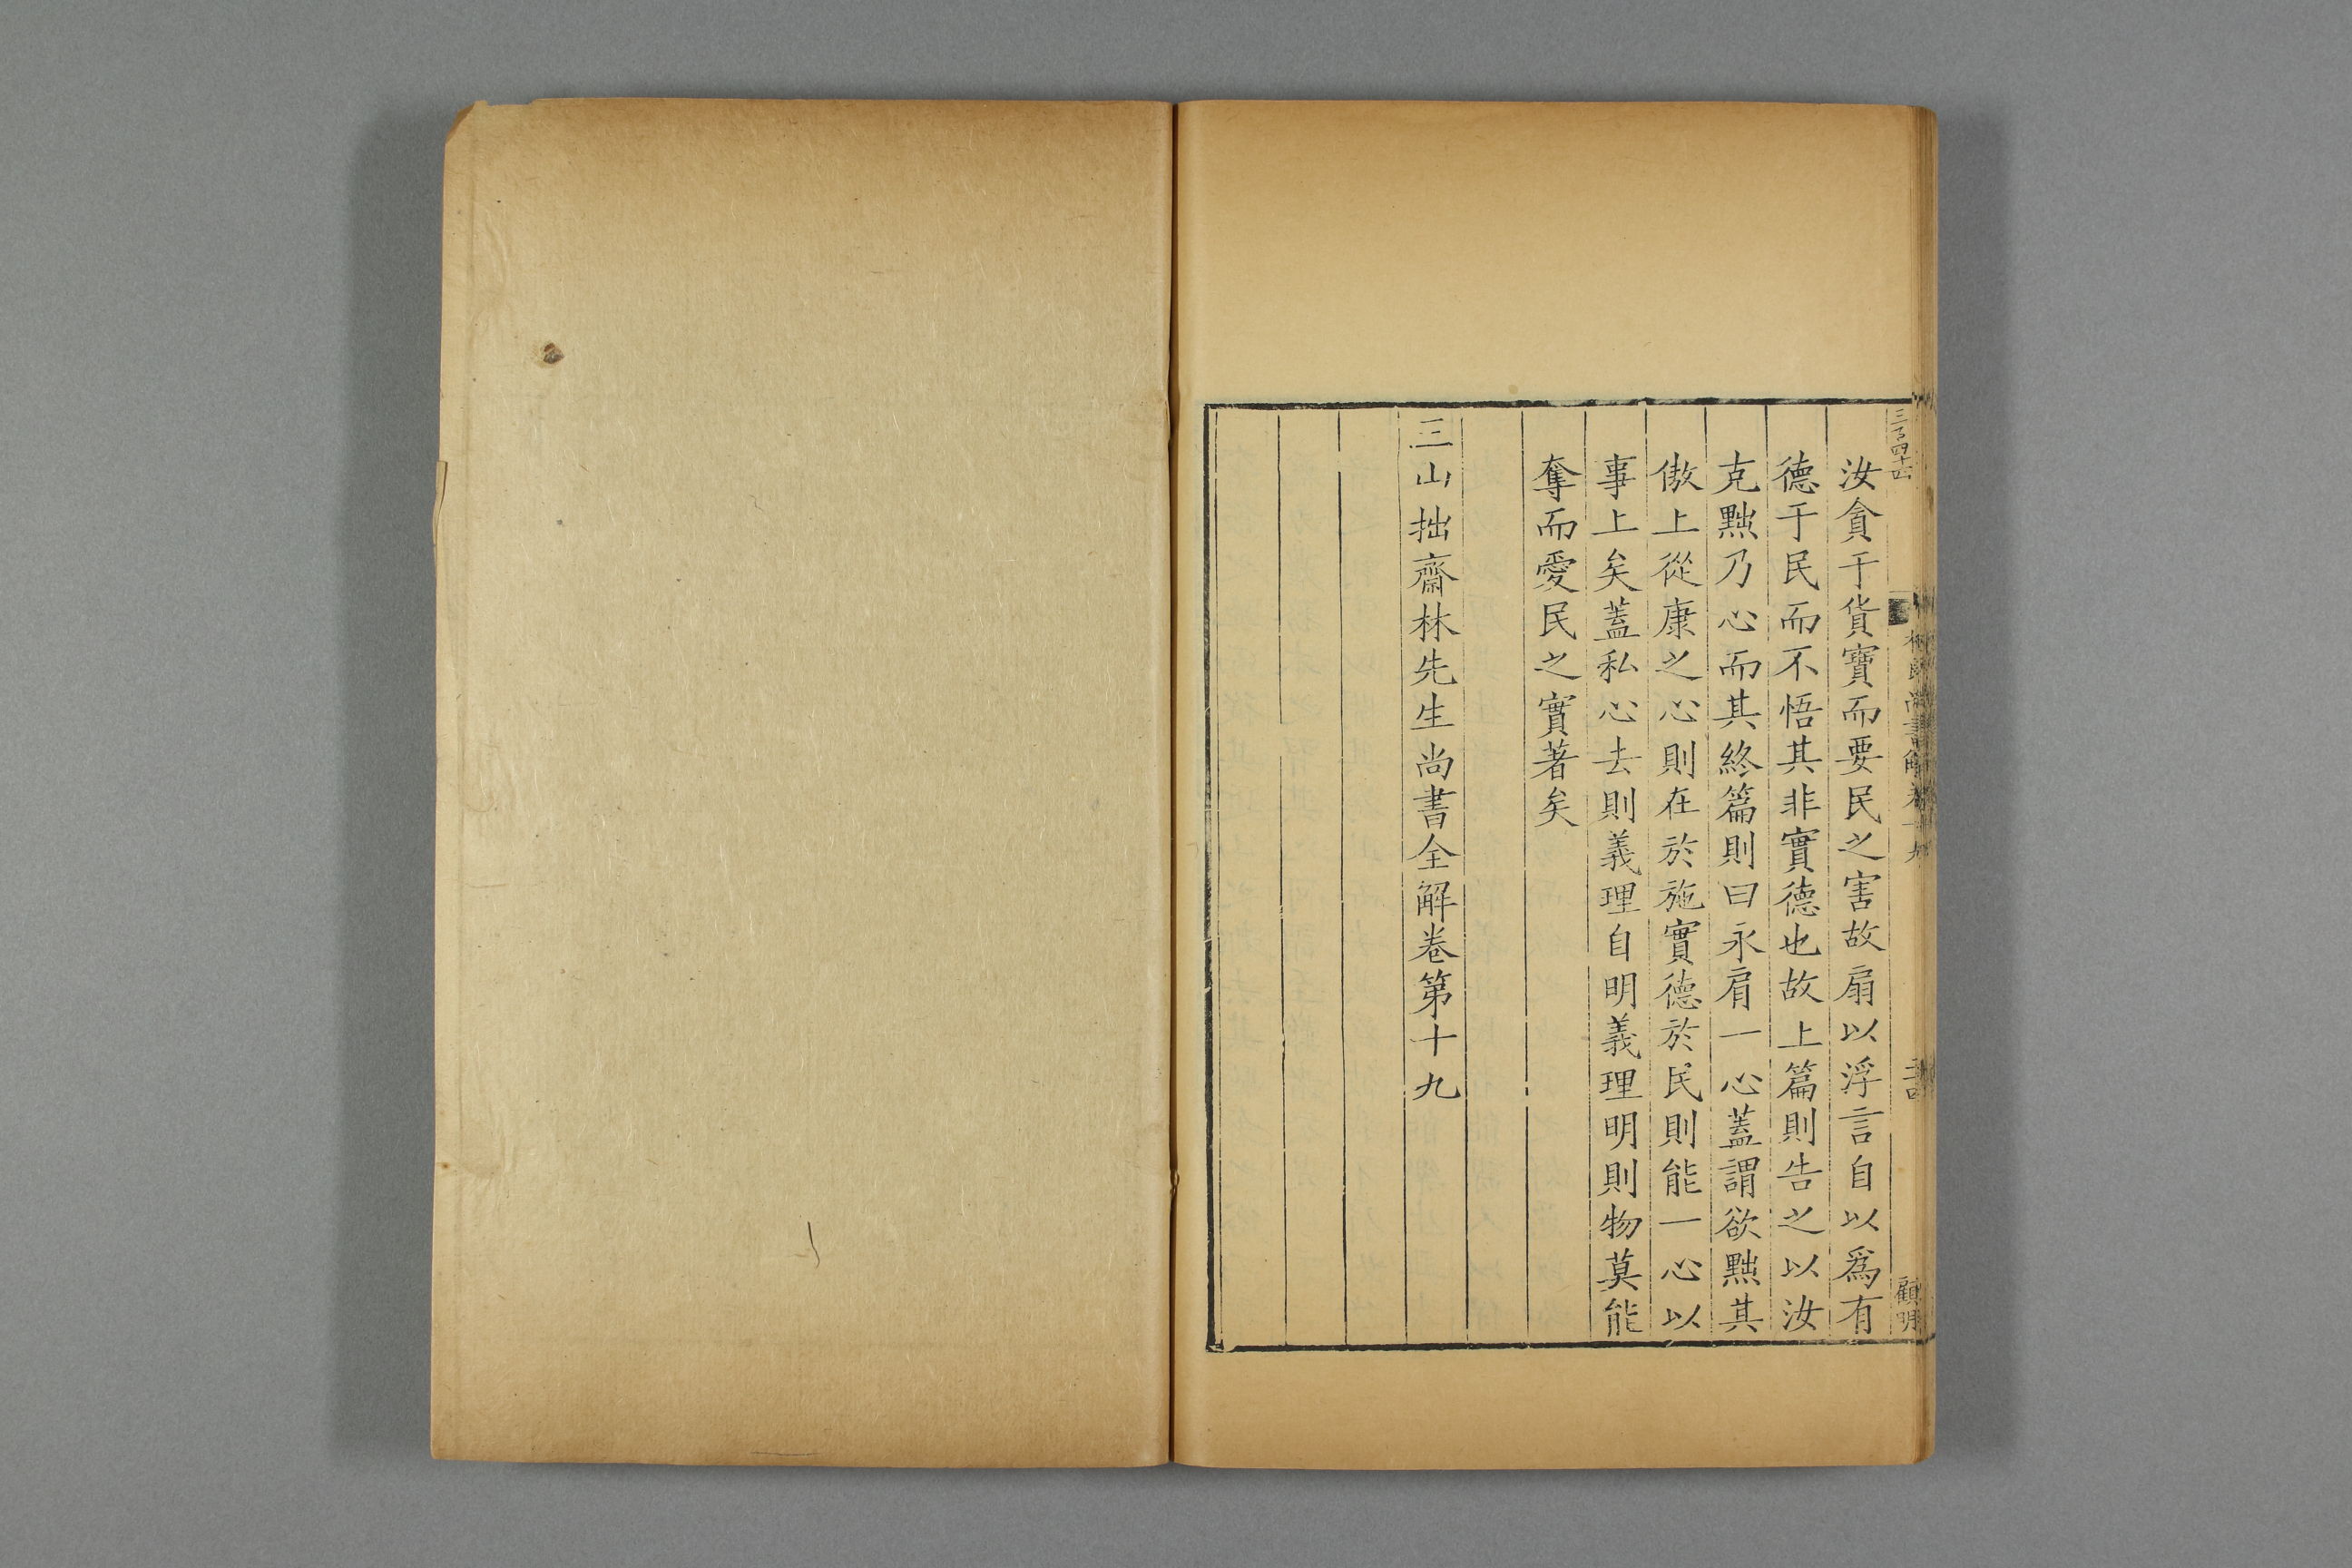 三百四十四
尚書解卷十九
顧明
汝貪于貨寶而要民之害故扇以浮言自以爲有
德于民而不悟其非實德也故上篇則告之以汝
克黜乃心而其終篇則曰永肩一心蓋謂欲黜其
傲上從康之心則在於施實德於民則能一心以
事上矣蓋私心去則義理自明義理明則物莫能
奪而愛民之實著矣
三山拙齋林先生尚書全解卷第十九